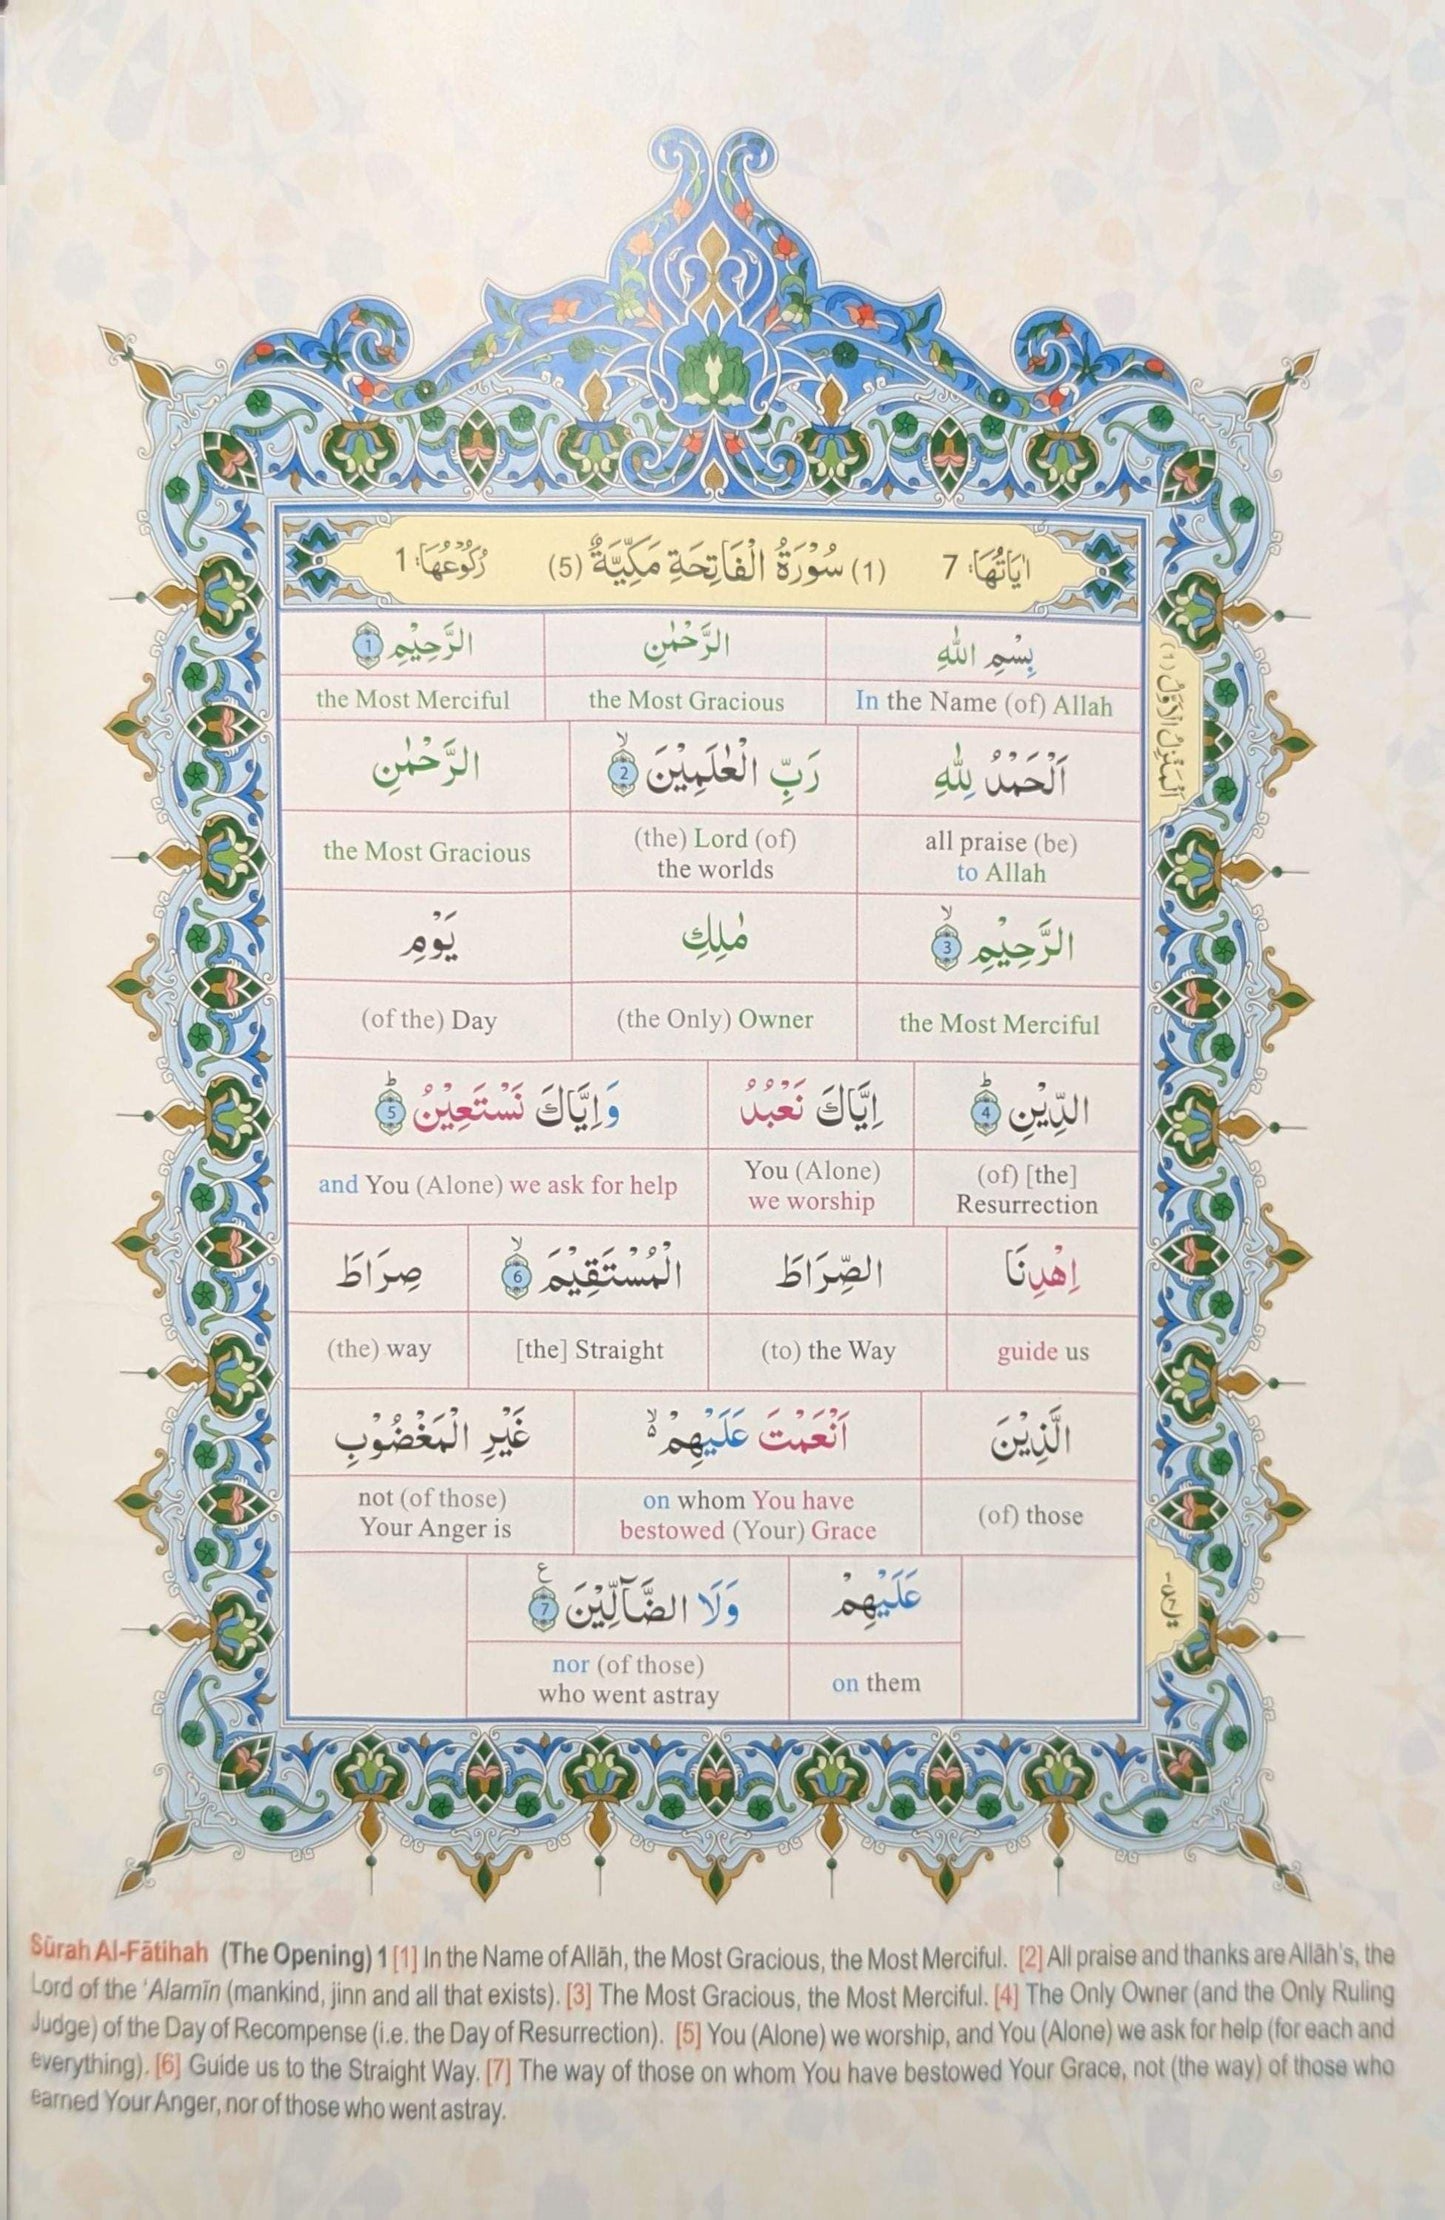 اٰيَاتُهَا: 7 (1) سُوْرَةُ الْفَاتِحَةِ مَكِّيَّةٌ (5) رُكُوْعُهَا: 1
بِسْمِ اللّٰهِ الرَّحْمٰنِ الرَّحِيْمِ 1
In the Name (of) Allah the Most Gracious the Most Merciful
اَلْحَمْدُ لِلّٰهِ رَبِّ الْعٰلَمِيْنَ ۙ 2 الرَّحْمٰنِ
all praise (be) (the) Lord (of) the Most Gracious
to Allah the worlds
الرَّحِيْمِ ۙ 3 مٰلِكِ يَوْمِ
the Most Merciful (the Only) Owner (of the) Day
الدِّيْنِ ؕ 4 اِيَّاكَ نَعْبُدُ وَاِيَّاكَ نَسْتَعِيْنُ ؕ 5
(of) [the] You (Alone) and You (Alone) we ask for help
Resurrection we worship
اِهْدِنَا الصِّرَاطَ الْمُسْتَقِيْمَ ۙ 6 صِرَاطَ
guide us (to) the Way [the] Straight (the) way
الَّذِيْنَ اَنْعَمْتَ عَلَيْهِمْ ۙ۬ غَيْرِ الْمَغْضُوْبِ
(of) those on whom You have not (of those)
bestowed (Your) Grace Your Anger is
عَلَيْهِمْ وَلَا الضَّآلِّيْنَ ع 7
on them nor (of those)
who went astray
اَلْمَنْزِلُ الْاَوَّلُ (1)
Sūrah Al-Fātihah (The Opening) 1 [1] In the Name of Allāh, the Most Gracious, the Most Merciful. [2] All praise and thanks are Allāh's, the
Lord of the 'Alamīn (mankind, jinn and all that exists). [3] The Most Gracious, the Most Merciful. [4] The Only Owner (and the Only Ruling
Judge) of the Day of Recompense (i.e. the Day of Resurrection). [5] You (Alone) we worship, and You (Alone) we ask for help (for each and
everything). [6] Guide us to the Straight Way. [7] The way of those on whom You have bestowed Your Grace, not (the way) of those who
earned Your Anger, nor of those who went astray.